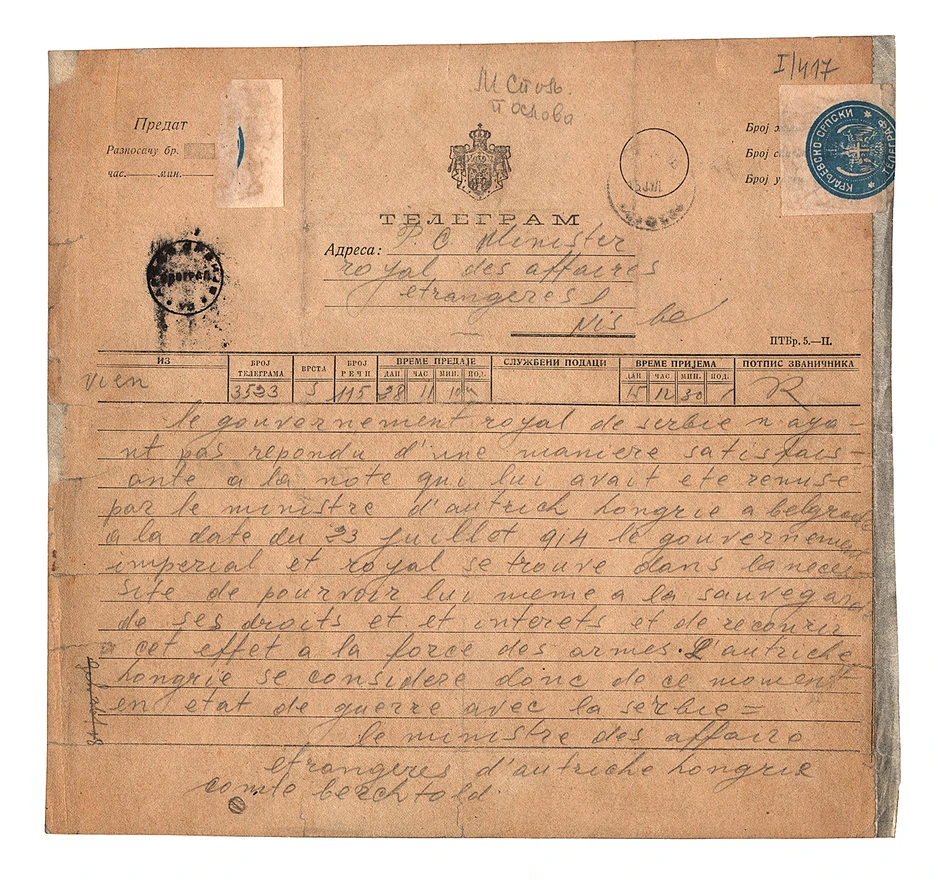 I/417
М Спољ.
послова
Предат
Разносачу бр.
час.——мин.——
Број
Број
Број у
КРАЉЕВСКО-СРПСКИ ТЕЛЕГРАФ
ТЕЛЕГРАМ
Адреса: P. C Minister
royal des affaires
etrangeres
Nis
ПТБр. 5.—II.
ИЗ
БРОЈ ТЕЛЕГРАМА
ВРСТА
БРОЈ РЕЧИ
ВРЕМЕ ПРЕДАЈЕ
ДАН ЧАС МИН. ПОД.
СЛУЖБЕНИ ПОДАЦИ
ВРЕМЕ ПРИЈЕМА
ДАН ЧАС МИН. ПОД.
ПОТПИС ЗВАНИЧНИКА
vien 3523 S 115 28 11 10 15 12 30
le gouvernement royal de serbie n aya-
nt pas repondu d'une maniere satisfais-
ante a la note qui lui avait ete remise
par le ministre d'autrich hongrie a belgrade
a la date du 23 juillot 914 le gouvernement
imperial et royal se trouve dans la neces
site de pourvoir lui meme a la sauvegar
de ses droits et et interets et de recourir
a cet effet a la force des armes. L'autriche
hongrie se considere donc de ce moment
en etat de guerre avec la serbie =
le ministre des affairo
etrangeres d'autriche hongrie
comte berchtold